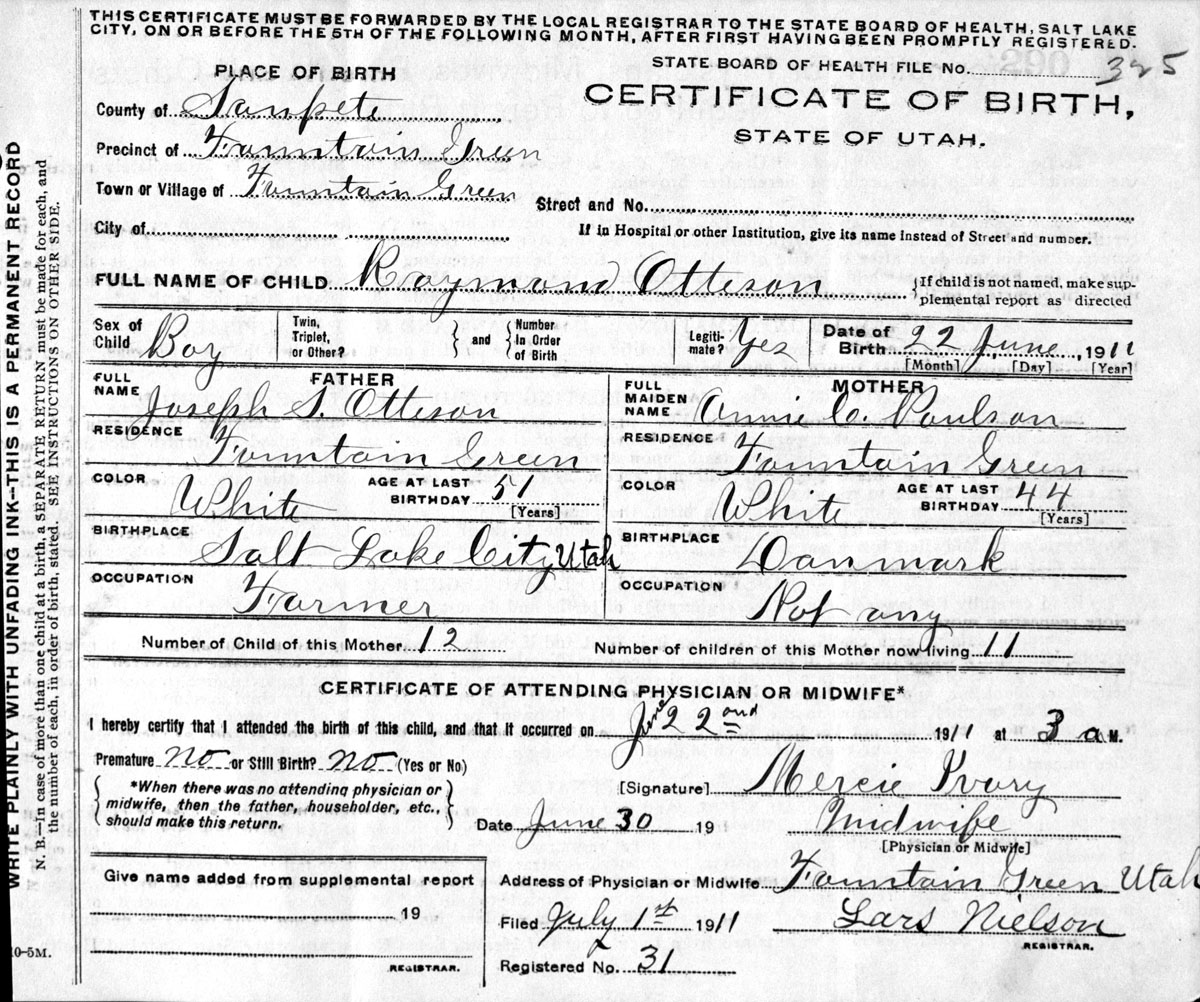 THIS CERTIFICATE MUST BE FORWARDED BY THE LOCAL REGISTRAR TO THE STATE BOARD OF HEALTH, SALT LAKE
CITY, ON OR BEFORE THE 5TH OF THE FOLLOWING MONTH, AFTER FIRST HAVING BEEN PROMPTLY REGISTERED.
STATE BOARD OF HEALTH FILE No. 325
PLACE OF BIRTH
CERTIFICATE OF BIRTH,
STATE OF UTAH.
County of Sanpete
Precinct of Fountain Green
Town or Village of Fountain Green
Street and No.
City of
If in Hospital or other Institution, give its name instead of Street and number.
FULL NAME OF CHILD Raymond Otteson
If child is not named, make sup-
plemental report as directed
Sex of Child Boy
Twin, Triplet, or Other? and Number In Order of Birth
Legiti-mate? Yes
Date of Birth 22 June, 1911
[Month] [Day] [Year]
FATHER
FULL NAME Joseph S. Otteson
RESIDENCE Fountain Green
COLOR White AGE AT LAST BIRTHDAY 51 [Years]
BIRTHPLACE Salt Lake City Utah
OCCUPATION Farmer
MOTHER
FULL MAIDEN NAME Annie C. Poulson
RESIDENCE Fountain Green
COLOR White AGE AT LAST BIRTHDAY 44 [Years]
BIRTHPLACE Danmark
OCCUPATION Not any
Number of Child of this Mother 12 Number of children of this Mother now living 11
CERTIFICATE OF ATTENDING PHYSICIAN OR MIDWIFE*
I hereby certify that I attended the birth of this child, and that it occurred on June 22nd 1911 at 3 a M.
Premature No or Still Birth? No (Yes or No)
*When there was no attending physician or
midwife, then the father, householder, etc.,
should make this return.
[Signature] Mercie Ivory
Date June 30 191
Midwife
[Physician or Midwife]
Give name added from supplemental report
19
REGISTRAR.
Address of Physician or Midwife Fountain Green Utah
Filed July 1st 1911 Lars Nielson
REGISTRAR.
Registered No. 31
10-5M.
WRITE PLAINLY WITH UNFADING INK--THIS IS A PERMANENT RECORD
N. B.—In case of more than one child at birth, a SEPARATE RETURN must be made for each, and
the number of each, in order of birth, stated. SEE INSTRUCTIONS ON OTHER SIDE.